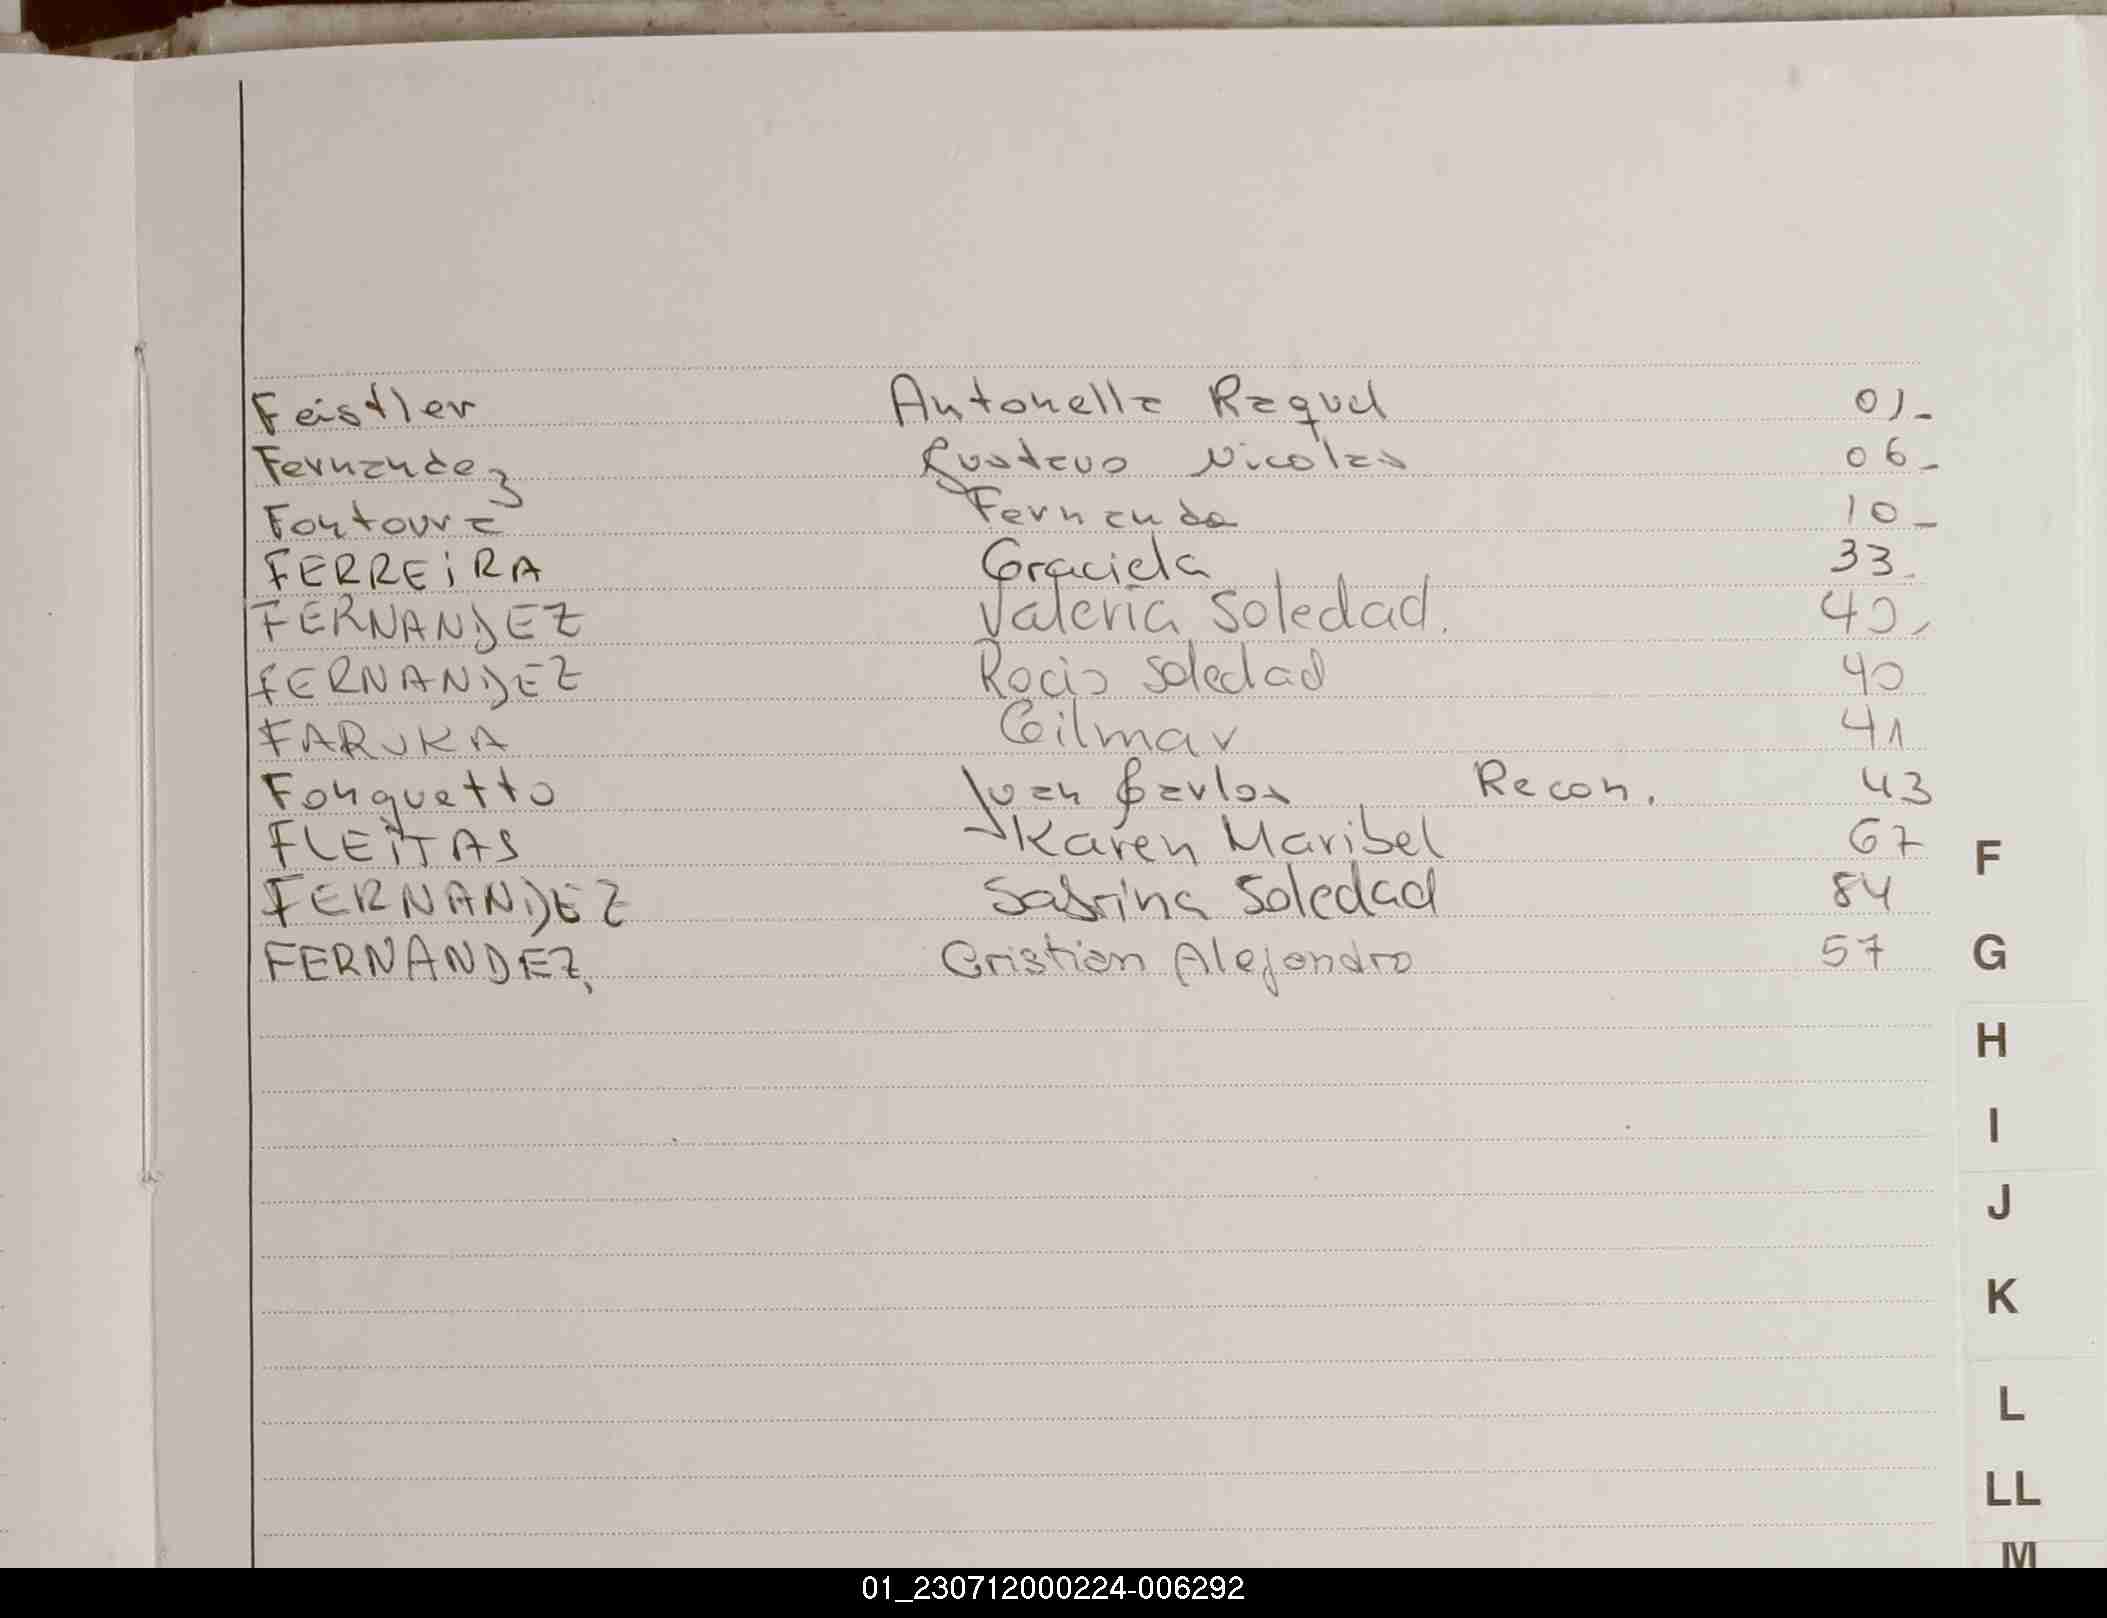 Feistler Antonella Raquel 01-
Fernandez Gustavo Nicolas 06-
Fontoura Fernanda 10-
FERREiRA Graciela 33.
FERNANDEZ Valeria Soledad. 40,
FERNANDEZ Rocio Soledad 40
FARUKA Gilmar 41
Fonguetto Juan Carlos Recon. 43
FLEITAS Karen Maribel 67
FERNANDEZ Sabrina Soledad 84
FERNANDEZ, Cristian Alejandro 57
F
G
H
I
J
K
L
LL
M
01_230712000224-006292